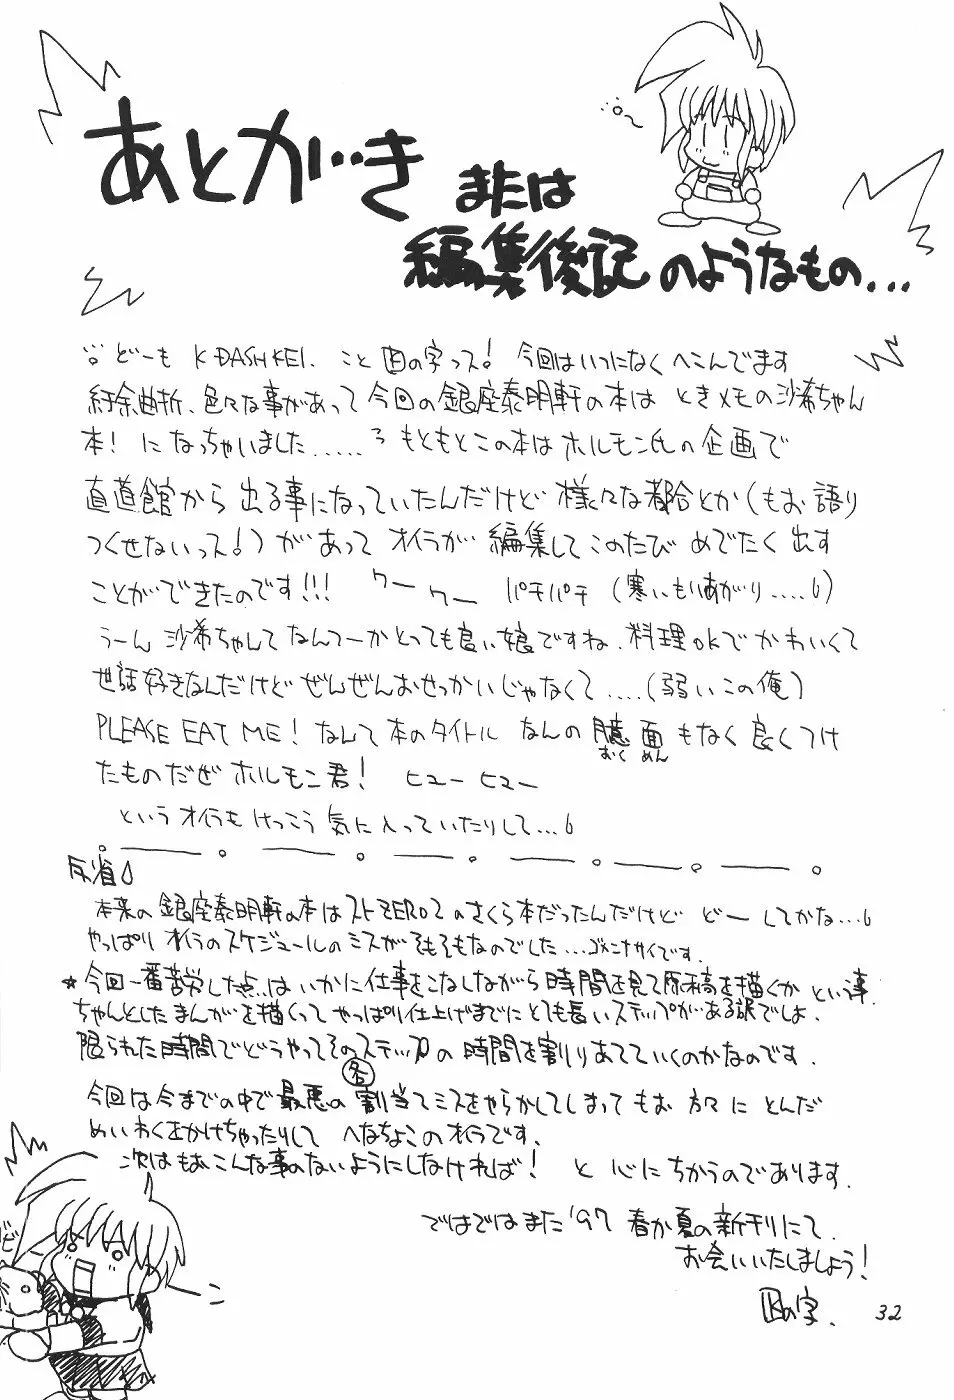 あとがき
または
編集後記のようなもの...
どーも K-DASH KEI. こと 囚の字っス! 今回はいつになくへこんでます
紆余曲折、色々な事があって今回の銀座泰明軒の本は ときメモの沙希ちゃん
本! になっちゃいました..... もともとこの本はホルモン氏の企画で
直道館から出る事になっていたんだけど様々な都合とか(もお語り
つくせないっス!)があってオイラが編集してこのたびめでたく出す
ことができたのです!!! ワー ワー パチパチ (寒いもりあがり....)
うーん沙希ちゃんてなんてーかとっても良い娘ですね.料理OKでかわいくて
世話好きなんだけどぜんぜんおせっかいじゃなくて....(弱いこの俺)
PLEASE EAT ME! なんて本のタイトル なんの臆面もなく良くつけ
おく めん
たものだぜホルモン君! ヒューヒュー
というオイラもけっこう気に入っていたりして...
反省
本来の銀座泰明軒の本はストZERO2のさくら本だったんだけど どーしてかな...
やっぱりオイラのスケジュールのミスがそもそもなのでした...ゴメンナサイです.
★今回一番苦労した点はいかに仕事をこなしながら時間を見て原稿を描くかという事.
ちゃんとしたまんがを描くってやっぱり仕上げまでにとても長いステップがある訳でしょ.
限られた時間でどうやってそのステップの時間を割りあてていくのかなのです.
各
今回は今までの中で最悪の割当てミスをやらかしてしまってもお方々にとんだ
めいわくをかけちゃったりして へなちょこのオイラです.
次はもおこんな事のないようにしなければ! と心にちかうのであります.
ではではまた'97 春か夏の新刊にて.
お会いいたしましょう!
囚の字.
32